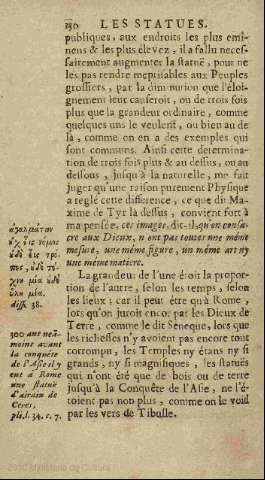 130 LES STATUES.
publiques, aux endroits les plus emi-
nens & les plus élevez, il a fallu neces-
sairement augmenter la statuë, pour ne
les pas rendre meprisables aux Peuples
grossiers, par la diminution que l'éloi-
gnement leur causeroit, ou de trois fois
plus que la grandeur ordinaire, comme
quelques uns le veulent, ou bien au de
là, comme on en a des exemples qui
sont communs. Ainsi cette determina-
tion de trois fois plus & au dessus, ou au
dessous, jusqu'à la naturelle, me fait
juger qu'une raison purement Physique
a reglé cette difference, ce que dit Ma-
xime de Tyr là dessus, convient fort à
ma pensée, ces images, dit-il, qu'on consa-
cre aux Dieux, n'ont pas toutes une même
mesure, une même figure, un même art ny
une même matiere.
La grandeur de l'une étoit la propor-
tion de l'autre, selon les temps, selon
les lieux; car il peut être qu'à Rome,
lors qu'on juroit encor par les Dieux de
Terre, comme le dit Seneque, lors que
les richesses n'y avoient pas encore tout
corrompu, les Temples ny étans ny si
grands, ny si magnifiques, les statuës
qui n'ont été que de bois ou de terre
jusqu'à la Conquête de l'Asie, ne l'é-
toient pas non plus, comme on le void
par les vers de Tibulle.
ἀγαλμάτων
diss. 38.
300 ans neã-
moins avant
la conquête
de l'Asie il y
eut à Rome
une statuë
d'airain de
Ceres,
pli. l. 34. c. 7.
2010 Ministerio de Cultura